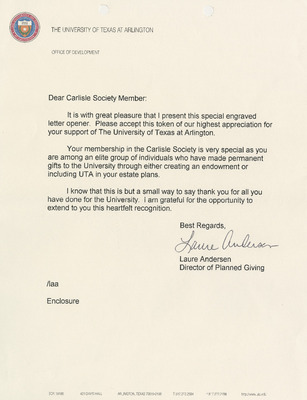 THE UNIVERSITY OF TEXAS AT ARLINGTON
OFFICE OF DEVELOPMENT
Dear Carlisle Society Member:
It is with great pleasure that I present this special engraved
letter opener. Please accept this token of our highest appreciation for
your support of The University of Texas at Arlington.
Your membership in the Carlisle Society is very special as you
are among an elite group of individuals who have made permanent
gifts to the University through either creating an endowment or
including UTA in your estate plans.
I know that this is but a small way to say thank you for all you
have done for the University. I am grateful for the opportunity
to extend to you this heartfelt recognition.
Best Regards,
Laure Andersen
Laure Andersen
Director of Planned Giving
/laa
Enclosure